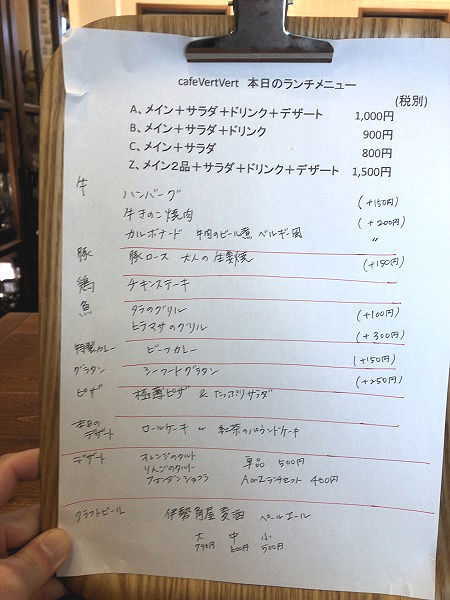 cafeVertVert 本日のランチメニュー
(税別)
A、メイン＋サラダ＋ドリンク＋デザート 1,000円
B、メイン＋サラダ＋ドリンク 900円
C、メイン＋サラダ 800円
Z、メイン２品＋サラダ＋ドリンク＋デザート 1,500円
牛 ハンバーグ (+150円)
牛きのこ焼肉 (+200円)
カルボナード 牛肉のビール煮 ベルギー風 〃
豚 豚ロース 大人の生姜焼 (+150円)
鶏 チキンステーキ
魚 タラのグリル (+100円)
ヒラマサのグリル (+300円)
特製カレー ビーフカレー (+150円)
グラタン シーフードグラタン (+250円)
ピザ 極薄ピザ & たっぷりサラダ
本日のデザート ロールケーキ or 紅茶のパウンドケーキ
デザート オレンジのタルト 単品 500円
りんごのタルト
フォンダンショコラ A or Zランチセット 400円
クラフトビール 伊勢角屋麦酒 ペールエール
大 中 小
790円 600円 500円